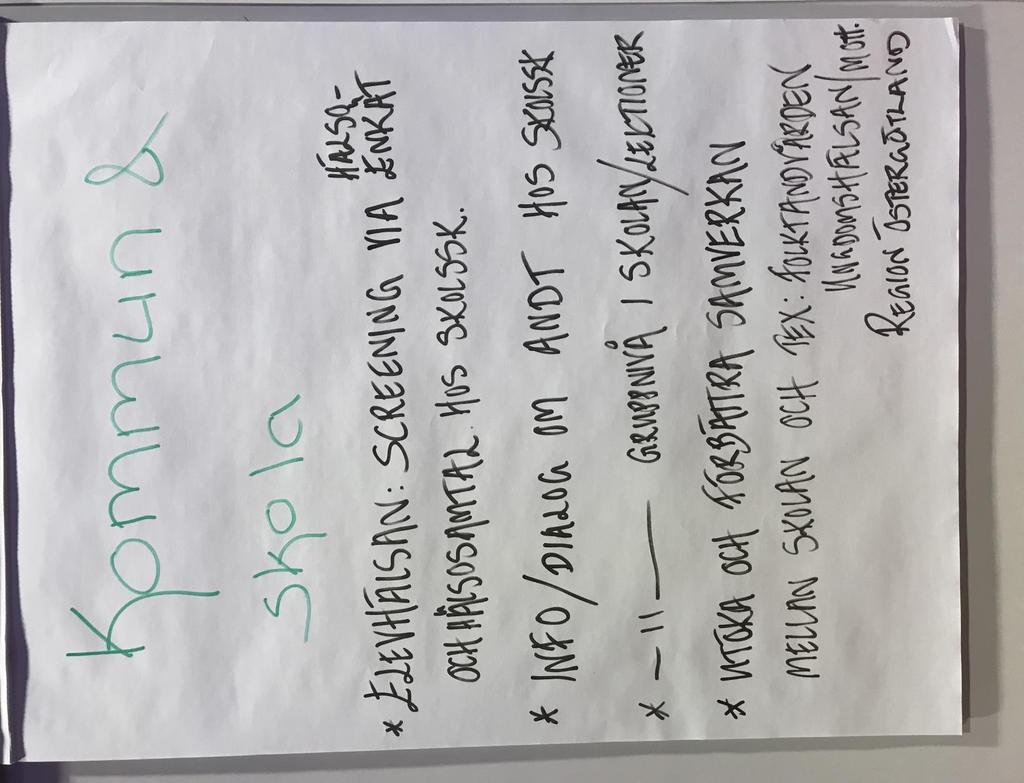 Kommun &
skola
* ELEVHÄLSAN: SCREENING VIA HÄLSO-
ENKÄT
OCH HÄLSOSAMTAL. HOS SKOLSSK.
* INFO/DIALOG OM ANDT HOS SKOLSSK
* -11- GRUPPNIVÅ I SKOLAN/LEKTIONER
* UTÖKA OCH FÖRBÄTTRA SAMVERKAN
MELLAN SKOLAN OCH TEX: FOLKTANDVÅRDEN
UNGDOMSHÄLSAN/MOTT.
REGION ÖSTERGÖTLAND